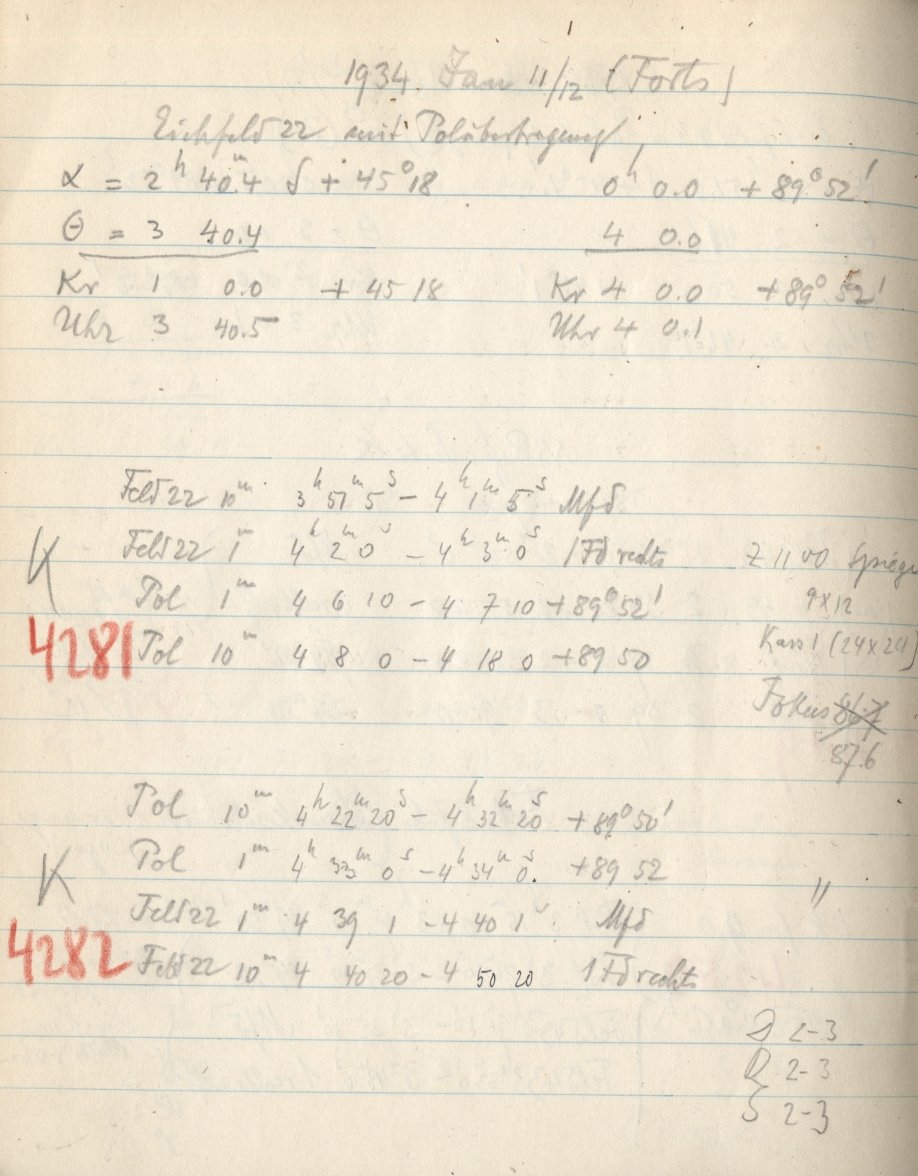 1934 Jan 11/12 (Forts)
Eichfeld 22 mit Polübertragung
α = 2ʰ 40ᵐ.4 δ + 45° 18 0ʰ 0.0 + 89° 52'
Θ = 3 40.4 4 0.0
Kr 1 0.0 + 45 18 Kr 4 0.0 + 89° 52'
Uhr 3 40.5 Uhr 4 0.1
Feld 22 10ᵐ 3ʰ 51ᵐ 5ˢ – 4ʰ 1ᵐ 5ˢ Mfd
Feld 22 1ᵐ 4ʰ 2ᵐ 0ˢ – 4ʰ 3ᵐ 0ˢ 1 Fd rechts Z II VO
K Pol 1ᵐ 4 6 10 – 4 7 10 + 89° 52' 9×12
4281 Pol 10ᵐ 4 8 0 – 4 18 0 + 89 50 Kass 1 (24×24)
Fokus 86.7
87.6
Pol 10ᵐ 4ʰ 22ᵐ 20ˢ – 4ʰ 32ᵐ 20ˢ + 89° 50'
K Pol 1ᵐ 4ʰ 33ᵐ 0ˢ – 4ʰ 34ᵐ 0ˢ. + 89 52 "
Feld 22 1ᵐ 4 39 1 – 4 40 1ˢ Mfd
4282 Feld 22 10ᵐ 4 40 20 – 4 50 20 1 Fd rechts
D 2–3
R 2–3
S 2–3